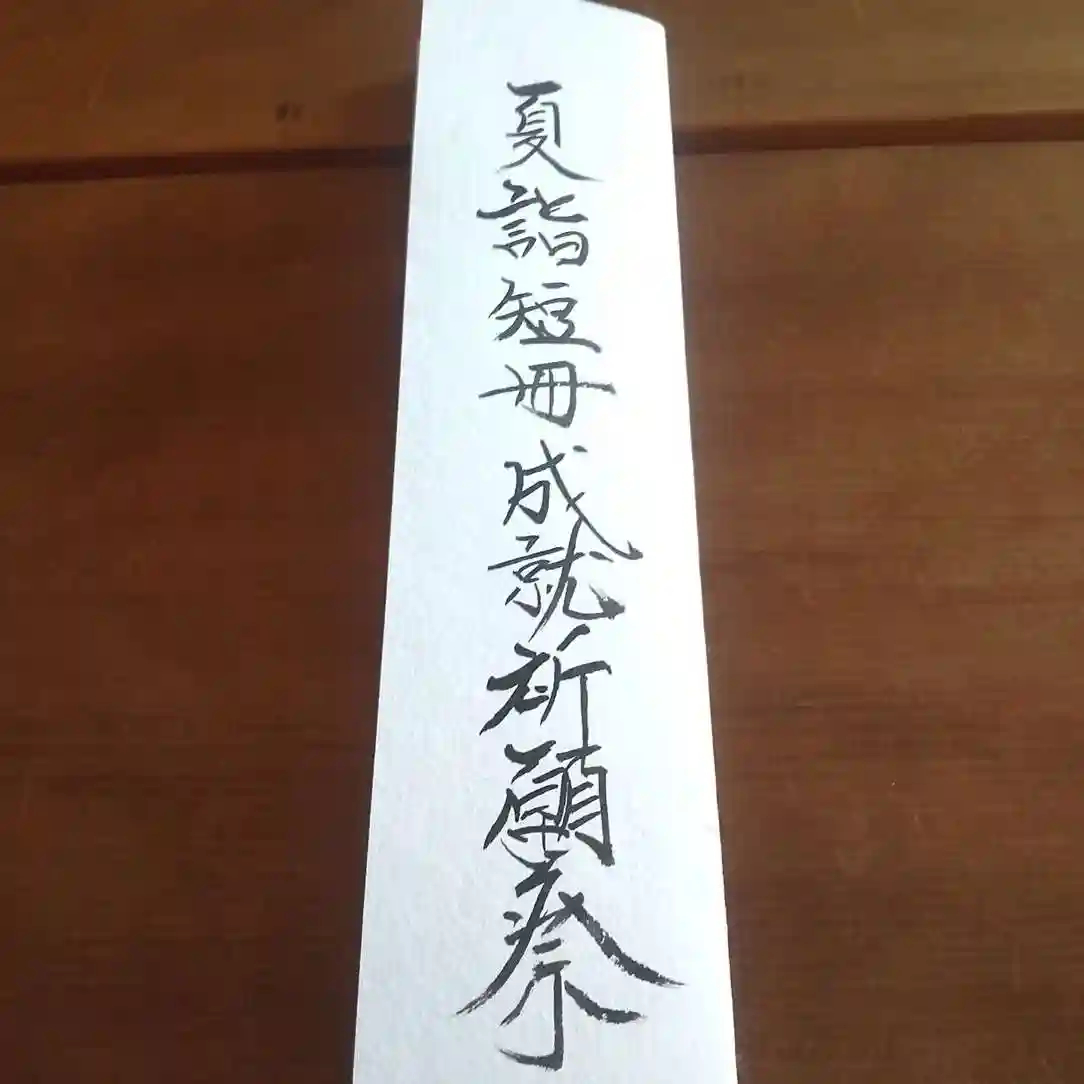 夏詣短冊成就祈願祭